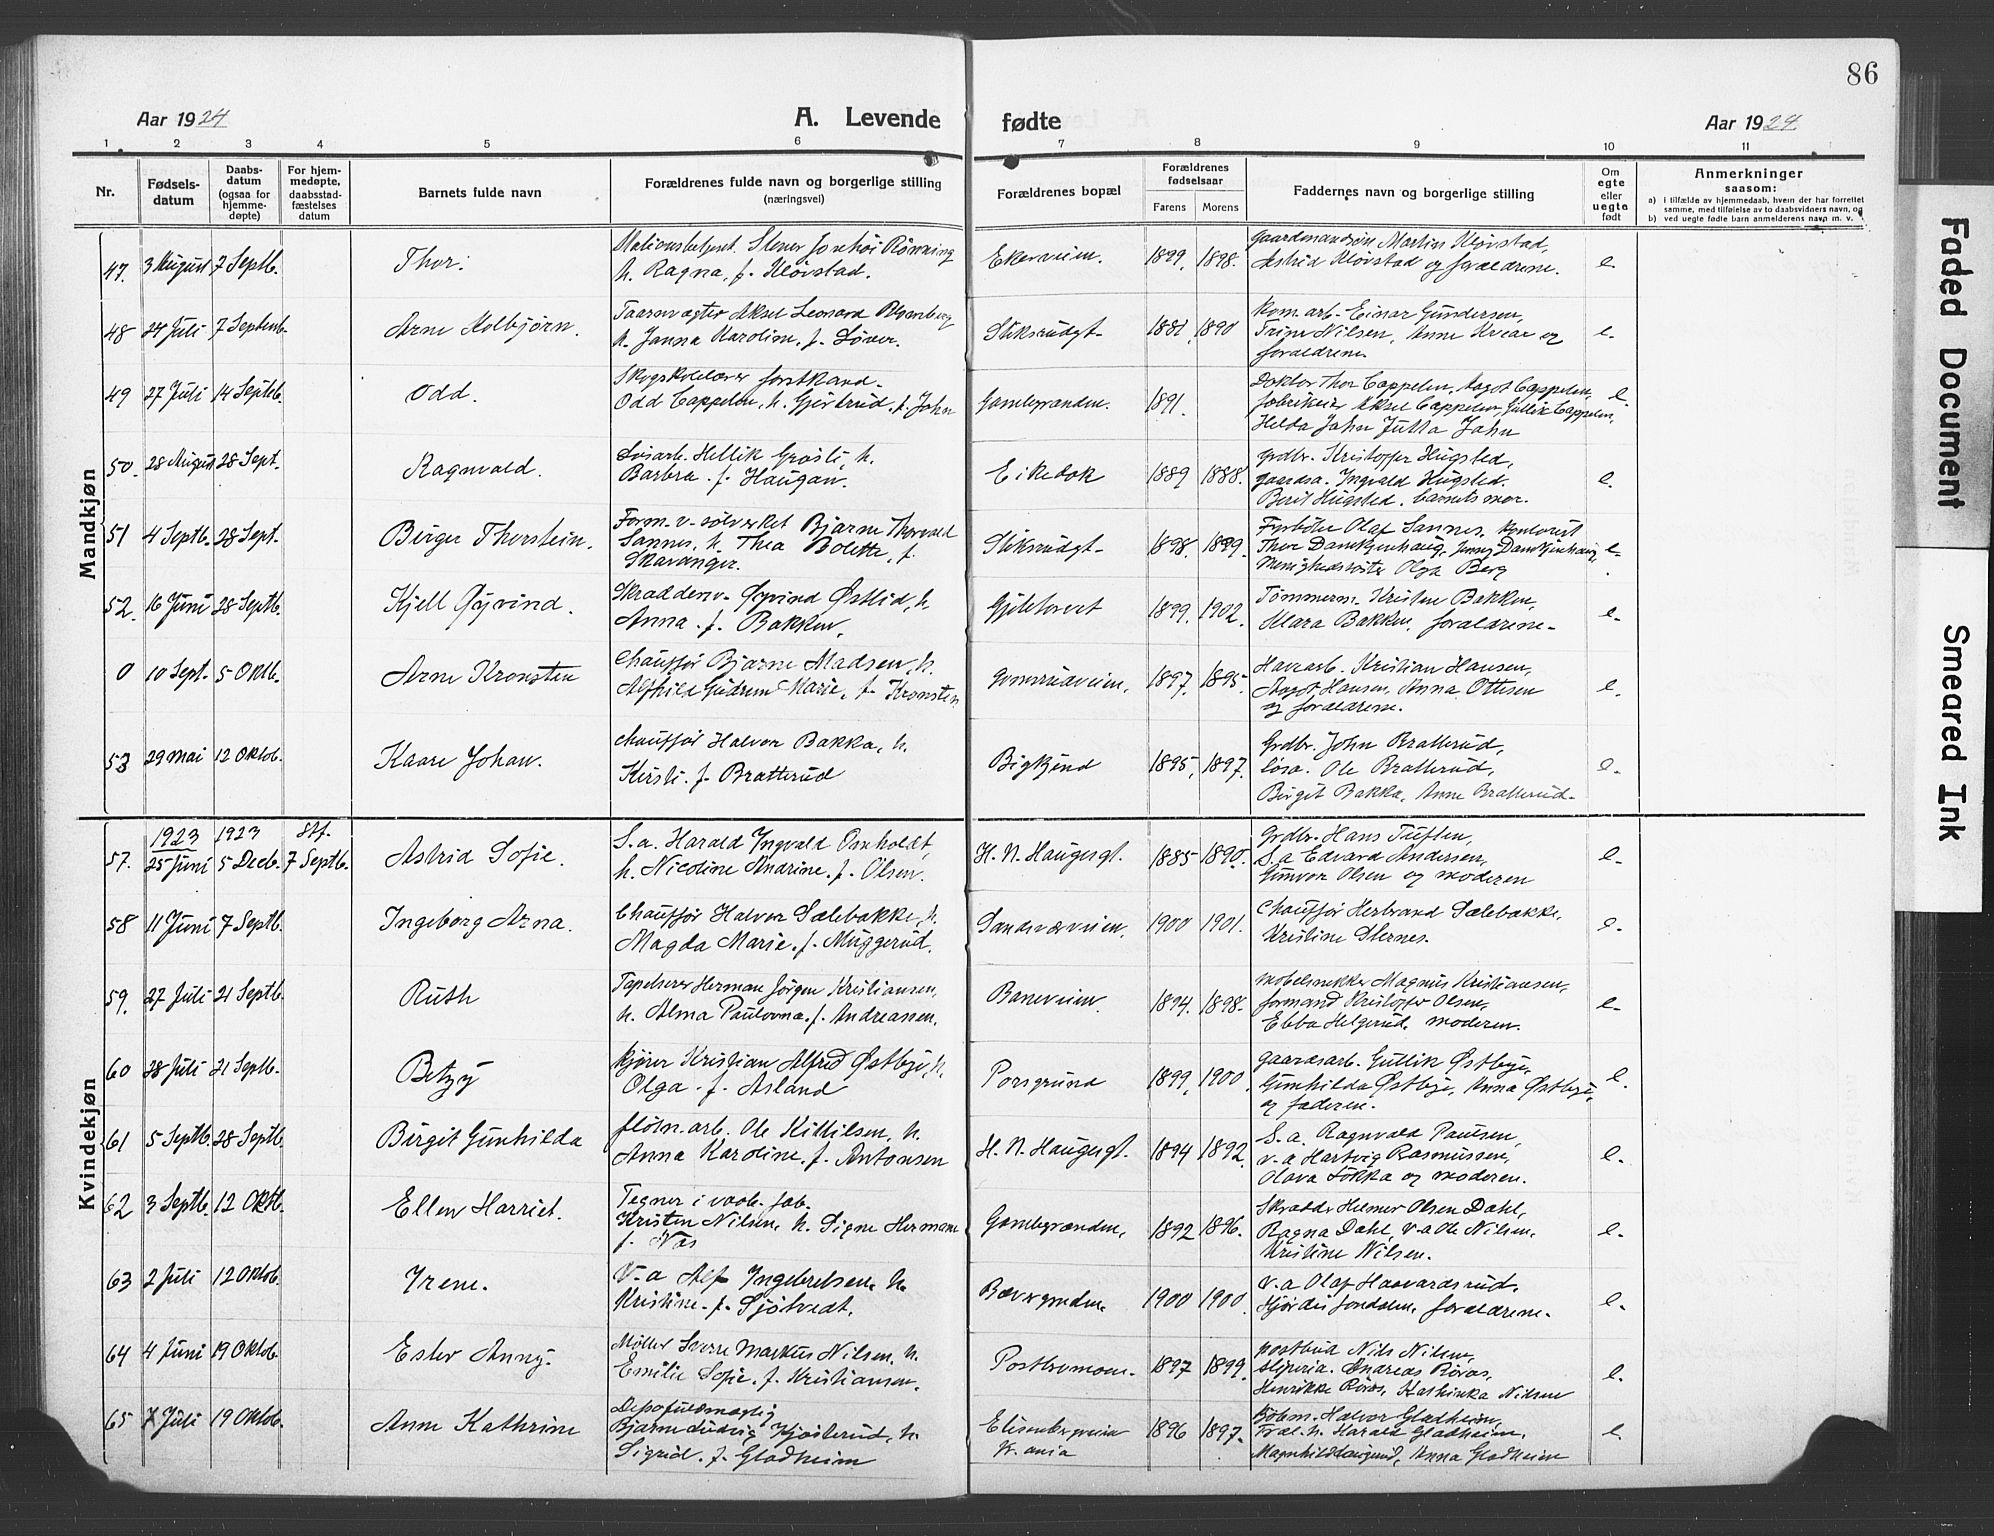 86
Aar 1924
A. Levende
fødte
Aar 1924
1 2 3 4 5 6 7 8 9 10 11
Nr.
Fødsels-
datum
Daabs-
datum
(ogsaa for
hjemme-
døpte)
For hjem-
medøpte,
daabsstad-
fæstelses
datum
Barnets fulde navn
Forældrenes fulde navn og borgerlige stilling
(næringsvei)
Forældrenes bopæl
Forældrenes
fødselsaar
Farens Morens
Faddernes navn og borgerlige stilling
Om
egte
eller
uegte
født
Anmerkninger
saasom:
a) i tilfælde av hjemmedaab, hvem der har forrettet
samme, med tilføielse av to daabsvidners navn, og
b) ved uegte fødte barn anmelderens navn m. v.
Mandkjøn
47. 3 August 7 Septb. Thor.
h. Ragna, f. Kløvstad.
Ekerveien. 1899. 1898.
Gaardmandssøn Martin Kløvstad,
Astrid Kløvstad og forældrene. e.
48 24 Juli 7 Septemb. Arne Kolbjørn.
Taarnvægter Aksel Leonard
h. Janna Karoline, f. Løver.
Stiksrudgt. 1881 1890
Kom.arb. Einar Gundersen,
Trine Nilsen, Anne Kvear og
forældrene. e.
49 27 Juli 14 Septb. Odd.
Skogskolelærer forstkand.
Odd Cappelen, h. Gjertrud, f. Jahn
Gamlegrænden. 1891.
Doktor Thor Cappelen, Aagot Cappelen,
fabrikeier Aksel Cappelen, Gullik Cappelen,
Helda Jahn Jutta Jahn e.
50. 28 August 28 Sept. Ragnvald.
Løsarb. Hellik Grøsli, h.
Barbra. f. Haugan.
Eikedok 1889 1888.
Grdbr. Kristoffer Hugsted,
gaardsa. Ingvald Hugsted.
Berit Hugsted. barnets mor. e.
51 4 Septb. 28 Sept. Birger Thorstein.
Form. v. sølvverket Bjarne Thorvald
Sannes, h. Thea Bolette, f.
Skavanger.
Stiksrudgt. 1898. 1899.
Fyrbøter Olaf Sannes, kontorist
Thor Danskjenhaug, Jenny Danskjenhaug,
Menighedssøster Olga Berg e.
52. 16 Juni 28 Septb. Kjell Øyvind.
Skræddersv. Øyvind Østlid, h.
Anna. f. Bakken.
Gjeletorvet 1899. 1902.
Tømmerm. Kristen Bakken,
Mara Bakken, forældrene. e.
0 10 Sept. 5 Oktb. Arne Kronsten
Chauffør Bjarne Madsen, h.
Alfhild Gudrun Marie, f. Kronsten
Gomsrudveien. 1897. 1895.
Havearb. Kristian Hansen,
Aagot Hansen, Anna Ottesen
og forældrene. e.
53 29 mai 12 Oktob. Kaare Johan.
Chauffør Halvor Bakka, h.
Kirsti. f. Bratterud
Bigkjend 1895. 1897.
Grdbr. John Bratterud,
løsa. Ole Bratterud,
Birgit Bakka, Anne Bratterud. e.
Kvindekjøn
1923 1923 Stf.
57. 25 Juni 5 Decb. 7 Septb. Astrid Sofie.
S.a. Harald Ingvald Omholdt,
h. Nicoline Andrine. f. Olsen.
H. N. Haugesgt. 1885 1890.
Grdbr. Hans Tuften,
S.a Edvard Andersen,
Gunvor Olsen og moderen e.
58 11 Juni 7 Septb. Ingeborg Arna.
Chauffør Halvor Sælebakke, h.
Magda Marie. f. Muggerud.
Sandsværveien. 1900 1901.
Chauffør Herbrand Sælebakke,
Kristine Sternes. e.
59. 27 Juli 21 Septb. Ruth
Tapetserer Herman Jørgen Kristiansen,
h. Alma Paulovna. f. Andreassen.
Baneveien. 1894. 1898.
Møbelsnekker Magnus Kristiansen,
formand Kristoffer Olsen,
Ebba Helgerud. moderen. e.
60 28 Juli 21 Septb. Betzy
Kjører Kristian Alfred Østbye, h.
Olga. f. Asland
Porsgrund 1899. 1900.
Gaardsarb. Gullik Østbye,
Gunhilda Østbye, Anna Østbye,
og faderen. e.
61 5 Septb. 28 Septb. Birgit Gunhilda
fløtn.arb. Ole Kittilsen, h.
Anna Karoline. f. Antonsen
H. N. Haugesgt. 1894 1892.
S.a. Ragnvald Paulsen,
v.a Hartvig Rasmussen,
Olava Løkka og moderen. e.
62 3 Septb. 12 Oktb. Ellen Harriet.
Tegner i vaab. fab.
Kristen Nilsen, h. Signe Hermane
f. Næs
Gamlegrænden. 1892 1896.
Skrædder Helmer Olsen Dahl,
Ragna Dahl, v.a Ole Nilsen,
Kristine Nilsen. e.
63 2 Juli 12 Oktob. Irene.
V.a Alf Ingebretsen. h.
Kristine. f. Sjøtvedt.
Bævergrænden. 1900 1900.
V.a Olaf Haavardsrud,
Hjørdis Jondalen, forældrene. e.
64 4 Juni 19 Oktob. Ester Anny.
Møller Sverre Markus Nilsen, h.
Emilie Sofie. f. Kristiansen.
1897 1899.
Postbud Nils Nilsen,
Andreas Røraas,
Henrikke Røras, Kathinka Nilsen e.
65 7 Juli 19 Oktob. Anne Kathrine
Bjarne Ludvig Kjøsterud, h.
Sigrid. f. Gladheim
1896 1897.
Kjøbm. Halvor Gladheim,
Harald Gladheim,
Magnhild Haugrud, Anna Gladheim e.
Faded Document
Smeared Ink